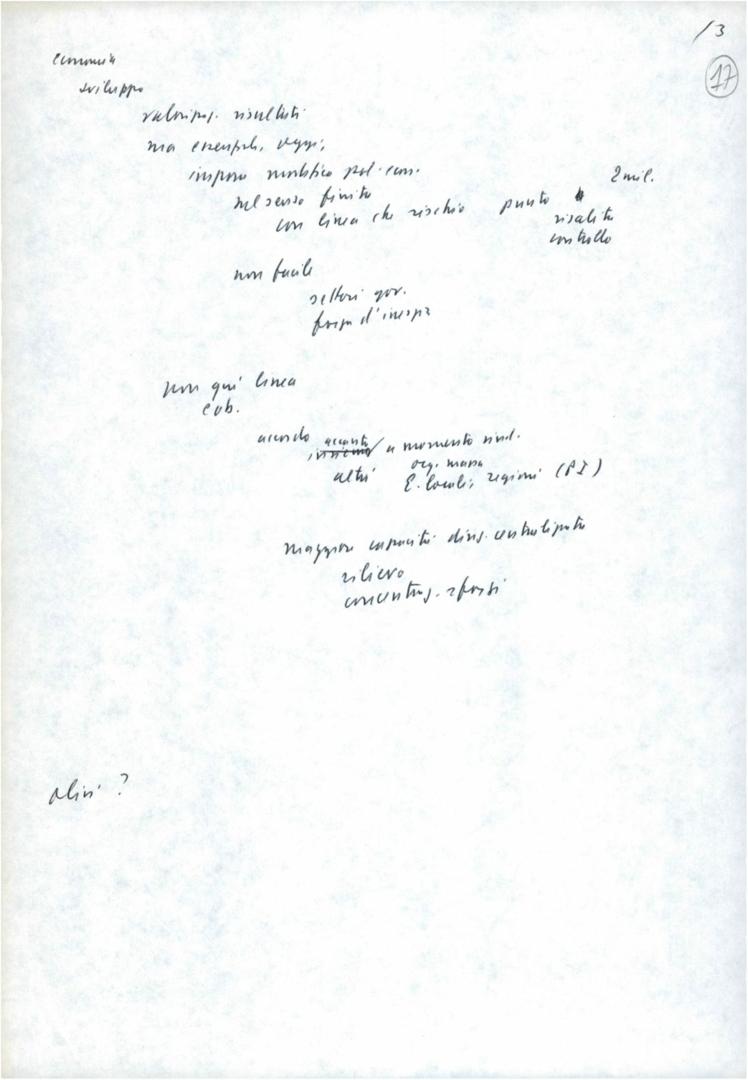 /3
17
economia
sviluppo
valorizz. risultati
ma esempli, oggi,
imposs modifica pol. econ.
2 mil.
nel senso finito
con linea che rischio punto
risalita
controllo
non facile
settori gov.
forza d'inerzia
non qui linea
accordo accanto a momento sind.
altri org. massa
E. locali, regioni (PI)
maggiore capacità direz. centralizzata
rilievo
concentraz. sforzi
?